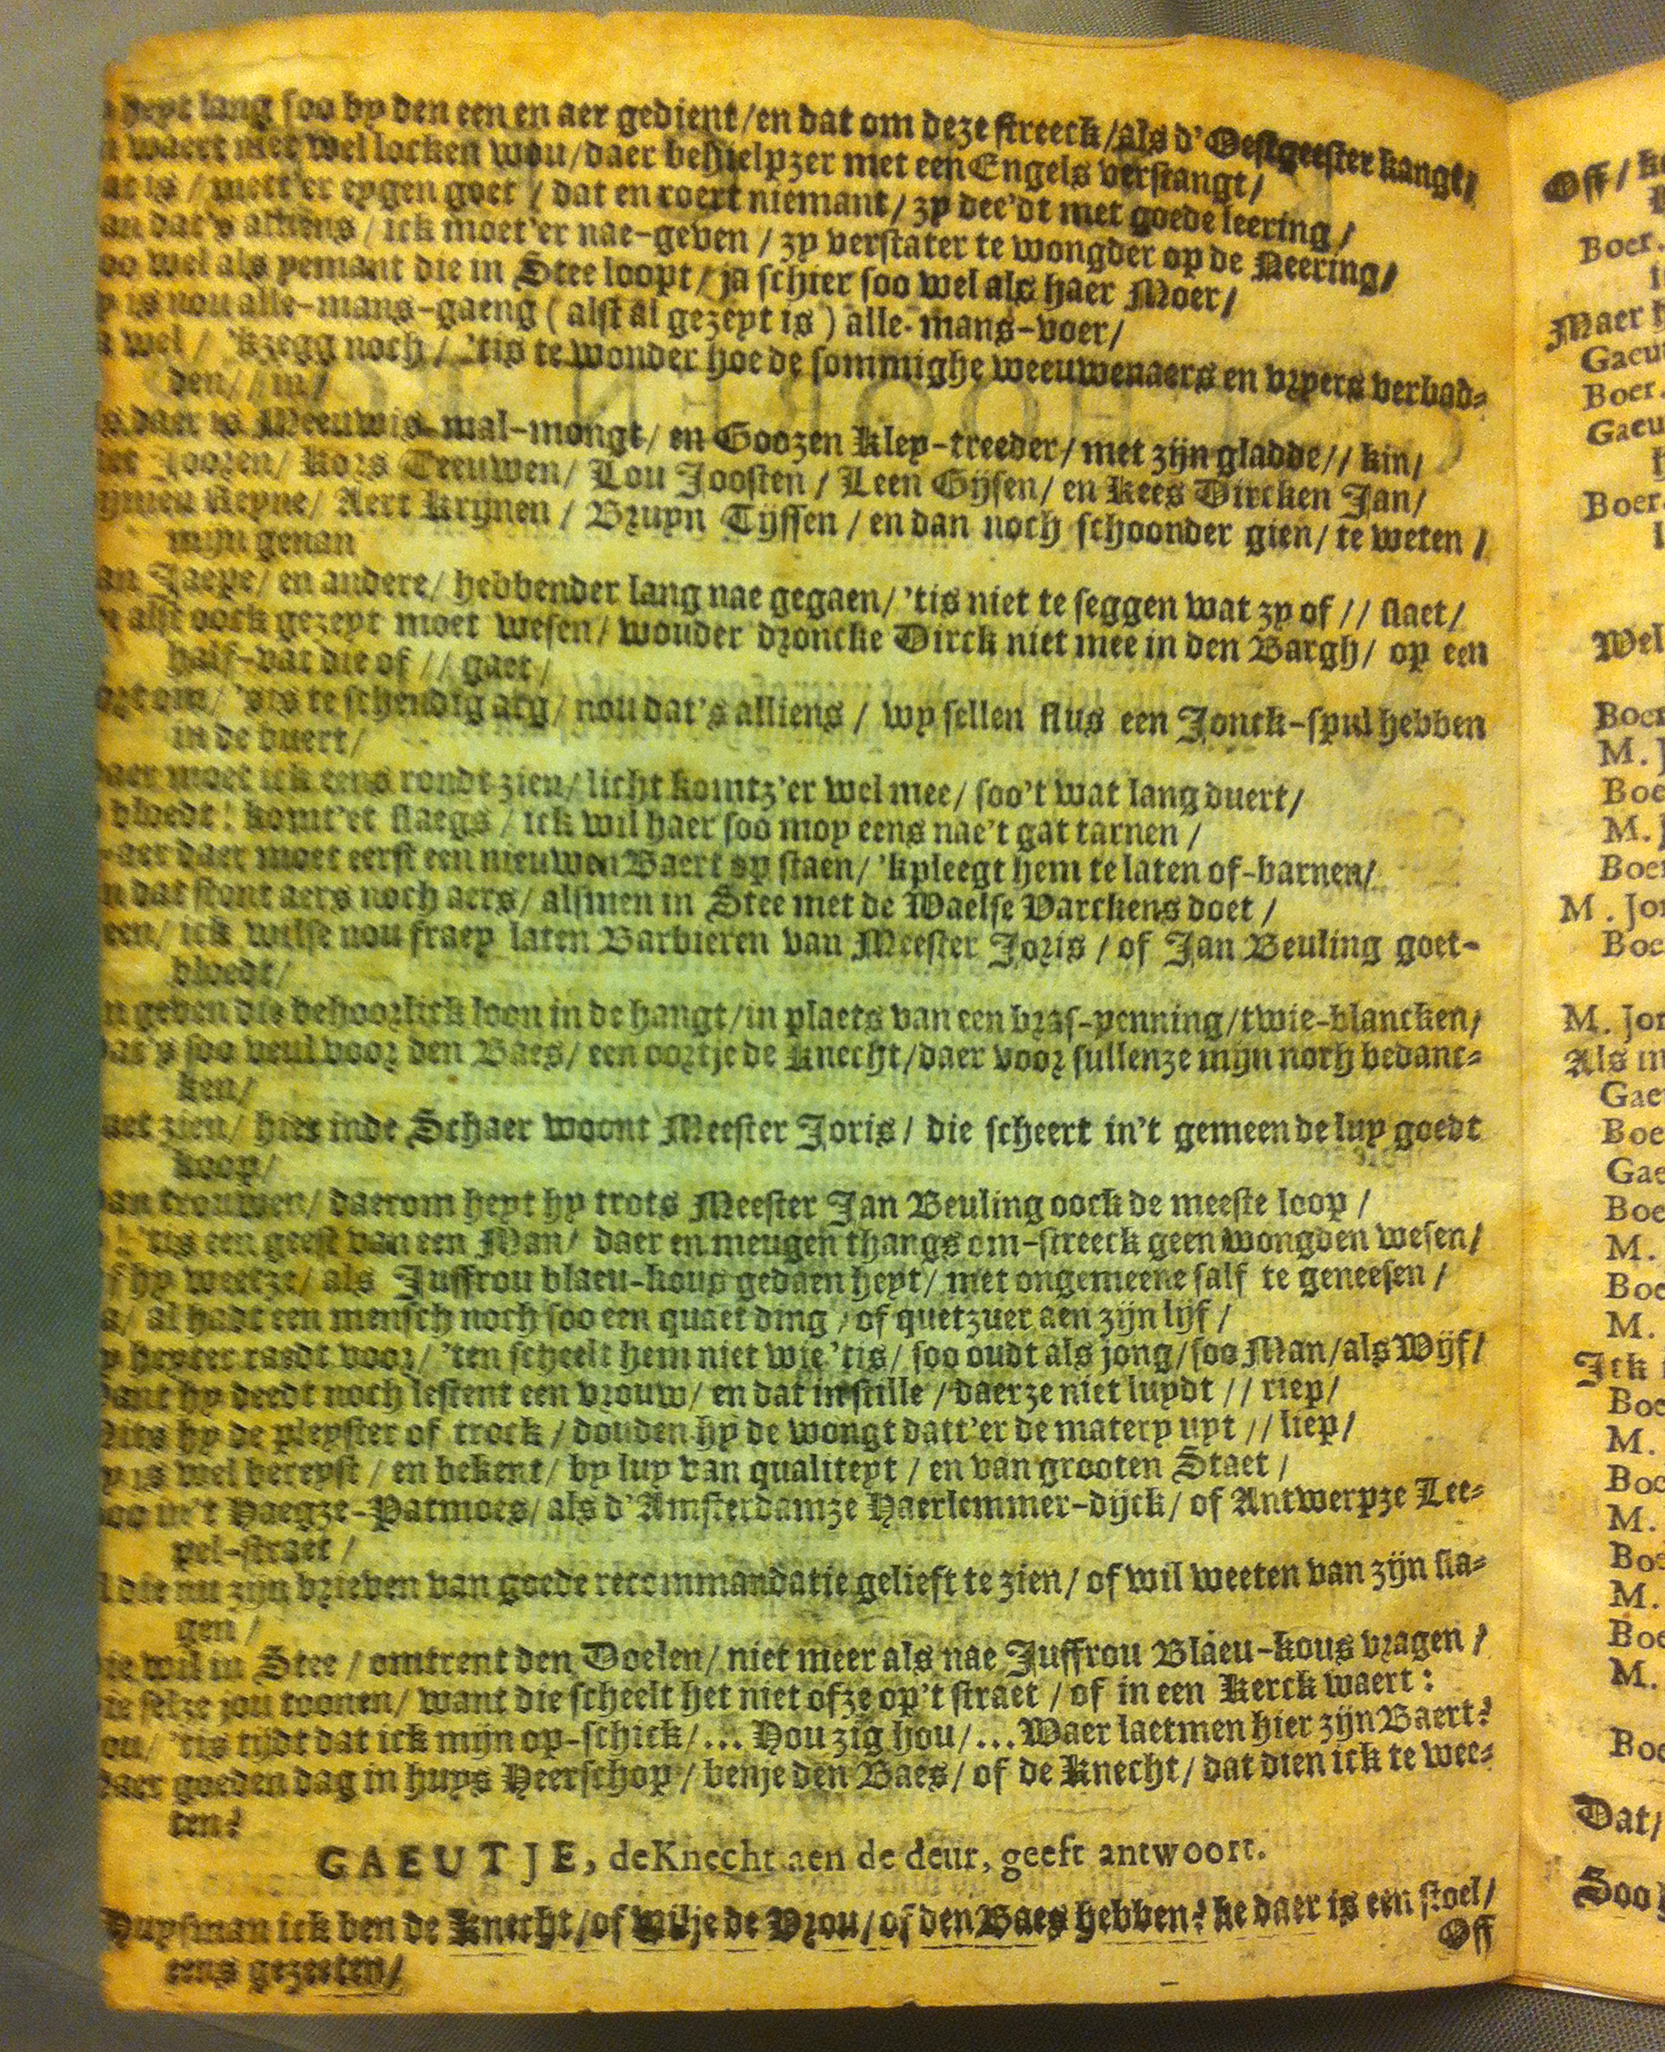 heyt lang soo by den een en aer gedient/en dat om deze streeck/als d'Oestgeester kangt/
waert met wel locken wou/daer behielpzer met een Engels verstangt/
at is / mett'er eygen goet / dat en roert niemant/ zy dee'dt met goede leering/
an dat's alliens / ick moet'er nae-geven / zy verstater te wongder op de Neering/
oo wel als yemant die in Stee loopt/ ja schier soo wel als haer Moer/
is nou alle-mans-gaeng (alst al gezeyt is) alle-mans-voer/
wel / 'kzegg noch / 'tis te wonder hoe de sommighe weeuwenaers en vryers verbad-
den// in/
s daer is Meeuwis mal-mongt/ en Goozen Kley-treeder/ met zijn gladde// kin/
Joozen/ Kors Teeuwen/ Lou Joosten / Leen Gijsen/ en Kees Dircken Jan/
Reyne/ Aert Krijnen / Bruyn Tijssen / en dan noch schoonder gien/ te weten /
mijn genan
an Jaepe/ en andere/ hebbender lang nae gegaen/ 'tis niet te seggen wat zy of // slaet/
alst oock gezeyt moet wesen/ wouder droncke Dirck niet mee in den Bargh/ op een
half-vat die of // gaet/
om/ 'tis te schendig arg/ nou dat's alliens / wy sellen flus een Jonck-spul hebben
in de buert/
aer moet ick eens rondt zien/ licht komtz'er wel mee/ soo't wat lang duert/
bloedt! komt'et slaegs / ick wil haer soo moy eens nae't gat tarnen /
aer daer moet eerst een nieuwen Baert op staen/ 'kpleegt hem te laten of-barnen/
n dat stont aers noch aers/ alsmen in Stee met de Waelse Varckens doet /
een/ ick wilse nou fraey laten Barbieren van Meester Joris / of Jan Beuling goet-
bloedt/
n geven die behoorlick loon in de hangt/in plaets van een bras-penning/twie-blancken/
at's soo veul voor den Baes/ een oortje de Knecht/daer voor sullenze mijn noch bedanc-
ken/
aet zien/ hier inde Schaer woont Meester Joris/ die scheert in't gemeen de luy goedt
koop/
an trouwen/ daerom heyt hy trots Meester Jan Beuling oock de meeste loop /
! 'tis een geest van een Man/ daer en meugen thangs om-streeck geen wongden wesen/
f hy weetze/ als Juffrou blaeu-kous gedaen heyt/ met ongemeene salf te geneesen /
s/ al hadt een mensch noch soo een quaet ding / of quetzuer aen zijn lijf /
y heyter raedt voor/ 'ten scheelt hem niet wie 'tis/ soo oudt als jong/soo Man/als Wijf/
ant hy deedt noch lestent een vrouw/ en dat in stille / daerze niet luydt // riep/
its hy de pleyster of trock / douden hy de wongt datt'er de matery uyt // liep/
y is wel bereyst / en bekent/ by luy van qualiteyt / en van grooten Staet /
oo in't Haegze-Patmoes/ als d'Amsterdamze Haerlemmer-dijck/ of Antwerpze Lee-
pel-straet /
die nu zijn brieven van goede recommandatie gelieft te zien/ of wil weeten van zijn sla-
gen /
ie wil in Stee / omtrent den Doelen/ niet meer als nae Juffrou Blaeu-kous vragen /
ie selze jou toonen/ want die scheelt het niet ofze op't straet / of in een Kerck waert:
ou/ 'tis tijdt dat ick mijn op-schick/... Hou zig hou/... Waer laetmen hier zijn Baert?
aer goeden dag in huys Heerschop / benje den Baes/ of de Knecht/ dat dien ick te wee-
ten?
GAEUTJE, deKnecht aen de deur, geeft antwoort.
Huysman ick ben de Knecht/of wilje de Vrou/of den Baes hebben? he daer is een stoel/
eens gezeeten/
Off
Off/
Boer.
Maer
Gaeu
Boer.
Gaeu
Boer.
Wel
Boer
M. J
Boe
M. J
Boer
M. Jor
Boe
M. Jor
Als
Gae
Boe
Gae
Boe
M.
Boe
M.
Ick
Boe
M.
Boe
M.
Boe
M.
Boe
M.
Boe
Dat/
Soo